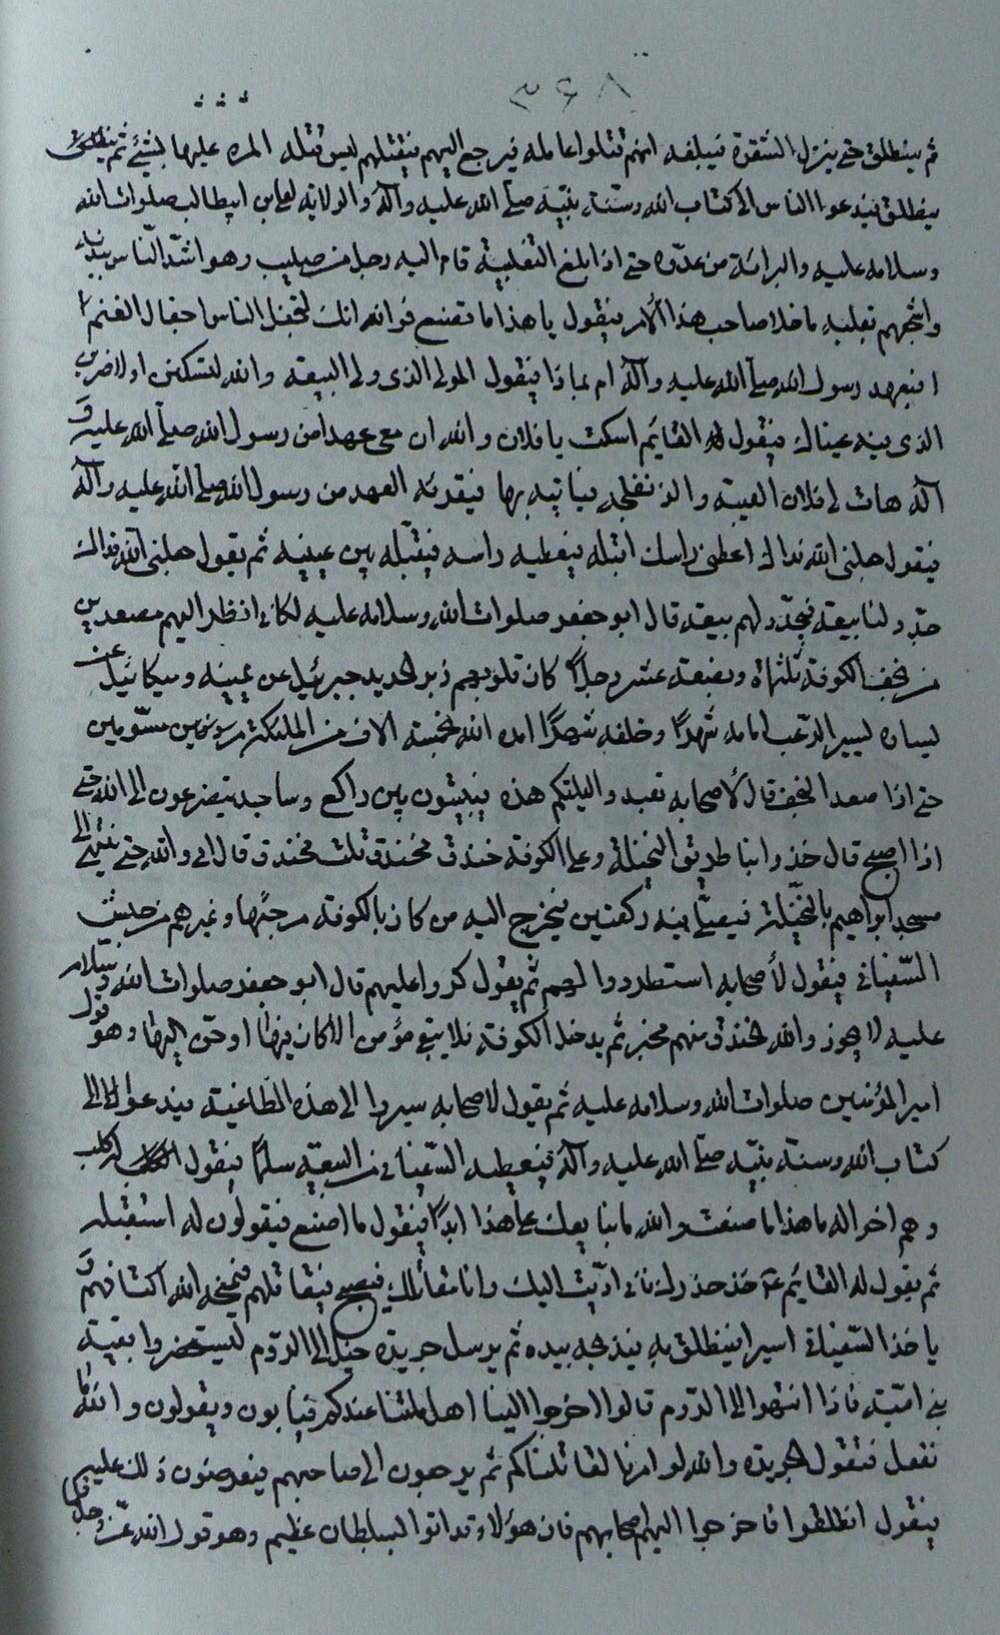 ۳۶۸
ثم ينطلق حتى ينزل الشقرة فيبلغه انهم قتلوا عامله فيرجع اليهم فيقتلهم ليس قتله المره عليها بشئ ثم ينطلق
ينطلق فيدعوا الناس الى كتاب الله وسنة نبيه صلى الله عليه وآله والولاية لعلي بن ابيطالب صلوات الله
وسلامه عليه والبرائة من عدوّه حتى اذا بلغ الثعلبية قام اليه رجل من صليب وهو اشدّ النّاس ببدنه
واشجعهم بقلبه ما خلا صاحب هذا الأمر فيقول يا هذا ما تصنع فوالله انك لتجفل الناس اجفال الغنم
افبعهد رسول الله صلى الله عليه وآله ام بماذا فيقول المولى الذى ولى البيعة والله لتسكتن او لاضربن
الذى فيه عيناك فيقول له القايم اسكت يا فلان والله ان معى عهدا من رسول الله صلى الله عليه و
آله هات لى فلان العيبة والزنفلجه فياتيه بها فيقرئه العهد من رسول الله صلى الله عليه وآله
فيقول جعلنى الله فداك اعطنى راسك اقبله فيعطيه راسه فيقبّله بين عينيه ثم يقول جعلنى الله فداك
جدد لنا بيعة فيجدّد لهم بيعة قال ابو جعفر صلوات الله وسلامه عليه لكانى انظر اليهم مصعدين
من نجف الكوفة ثلثمائة وبضعة عشر رجلا كان قلوبهم زبر الحديد جبرئيل عن يمينه وميكائيل عن
يساره يسير الرّعب امامه شهرًا وخلفه شهرًا امده الله بخمسة الاف من الملئكة مسوّمين
حتى اذا صعد النجف قال لأصحابه تعبدوا ليلتكم هذه فيبيتون بين راكع وساجد يتضرعون الى الله حتى
اذا اصبح قال خذوا بنا طريق النخيلة وعلى الكوفة خندق مخندق قلت مخندق قال اى والله حتى ينتهى الى
مسجد ابراهيم بالنخيلة فيصلّى فيه ركعتين فيخرج اليه من كان بالكوفة من مرجئها وغيرهم من جيش
السّفيانى فيقول لأصحابه استطردوا لهم ثم يقول كروا عليهم قال ابو جعفر صلوات الله وسلامه
عليه لا يجوز والله الخندق منهم مخبر ثم يدخل الكوفة فلا يبقى مؤمن الا كان فيها او حنّ اليها وهو قول
امير المؤمنين صلوات الله وسلامه عليه ثم يقول لاصحابه سيروا الى هذه الطّاغية فيدعوا الى
كتاب الله وسنة نبيّه صلى الله عليه وآله فيعطيه السّفيانى من البيعة سلما فيقول له كلب
وهم اخواله ما هذا ما صنعت والله ما نبايعك على هذا ابدًا فيقول ما اصنع فيقولون له استقبله
ثم يقول له القايم خذ حذرك فانى ادّيت اليك وانا مقاتلك فيصبح فيقاتلهم فيمنحه الله اكتافهم و
ياخذ السّفيانى اسيرا فينطلق به فيذبحه بيده ثم يرسل جريدة خيل الى الرّوم ليستحضروا بقية
بنى امّية فاذا انتهوا الى الرّوم قالوا اخرجوا الينا اهل ملتنا عندكم فيابون ويقولون والله لا
نفعل فتقول الجريدة والله لو امرنا لقاتلناكم ثم يرجعون الى صاحبهم فيعرضون ذلك عليه
فيقول انطلقوا فاخرجوا اليهم اصحابهم فان هؤلاء قد اتوا بسلطان عظيم وهو قول الله عزّ وجل